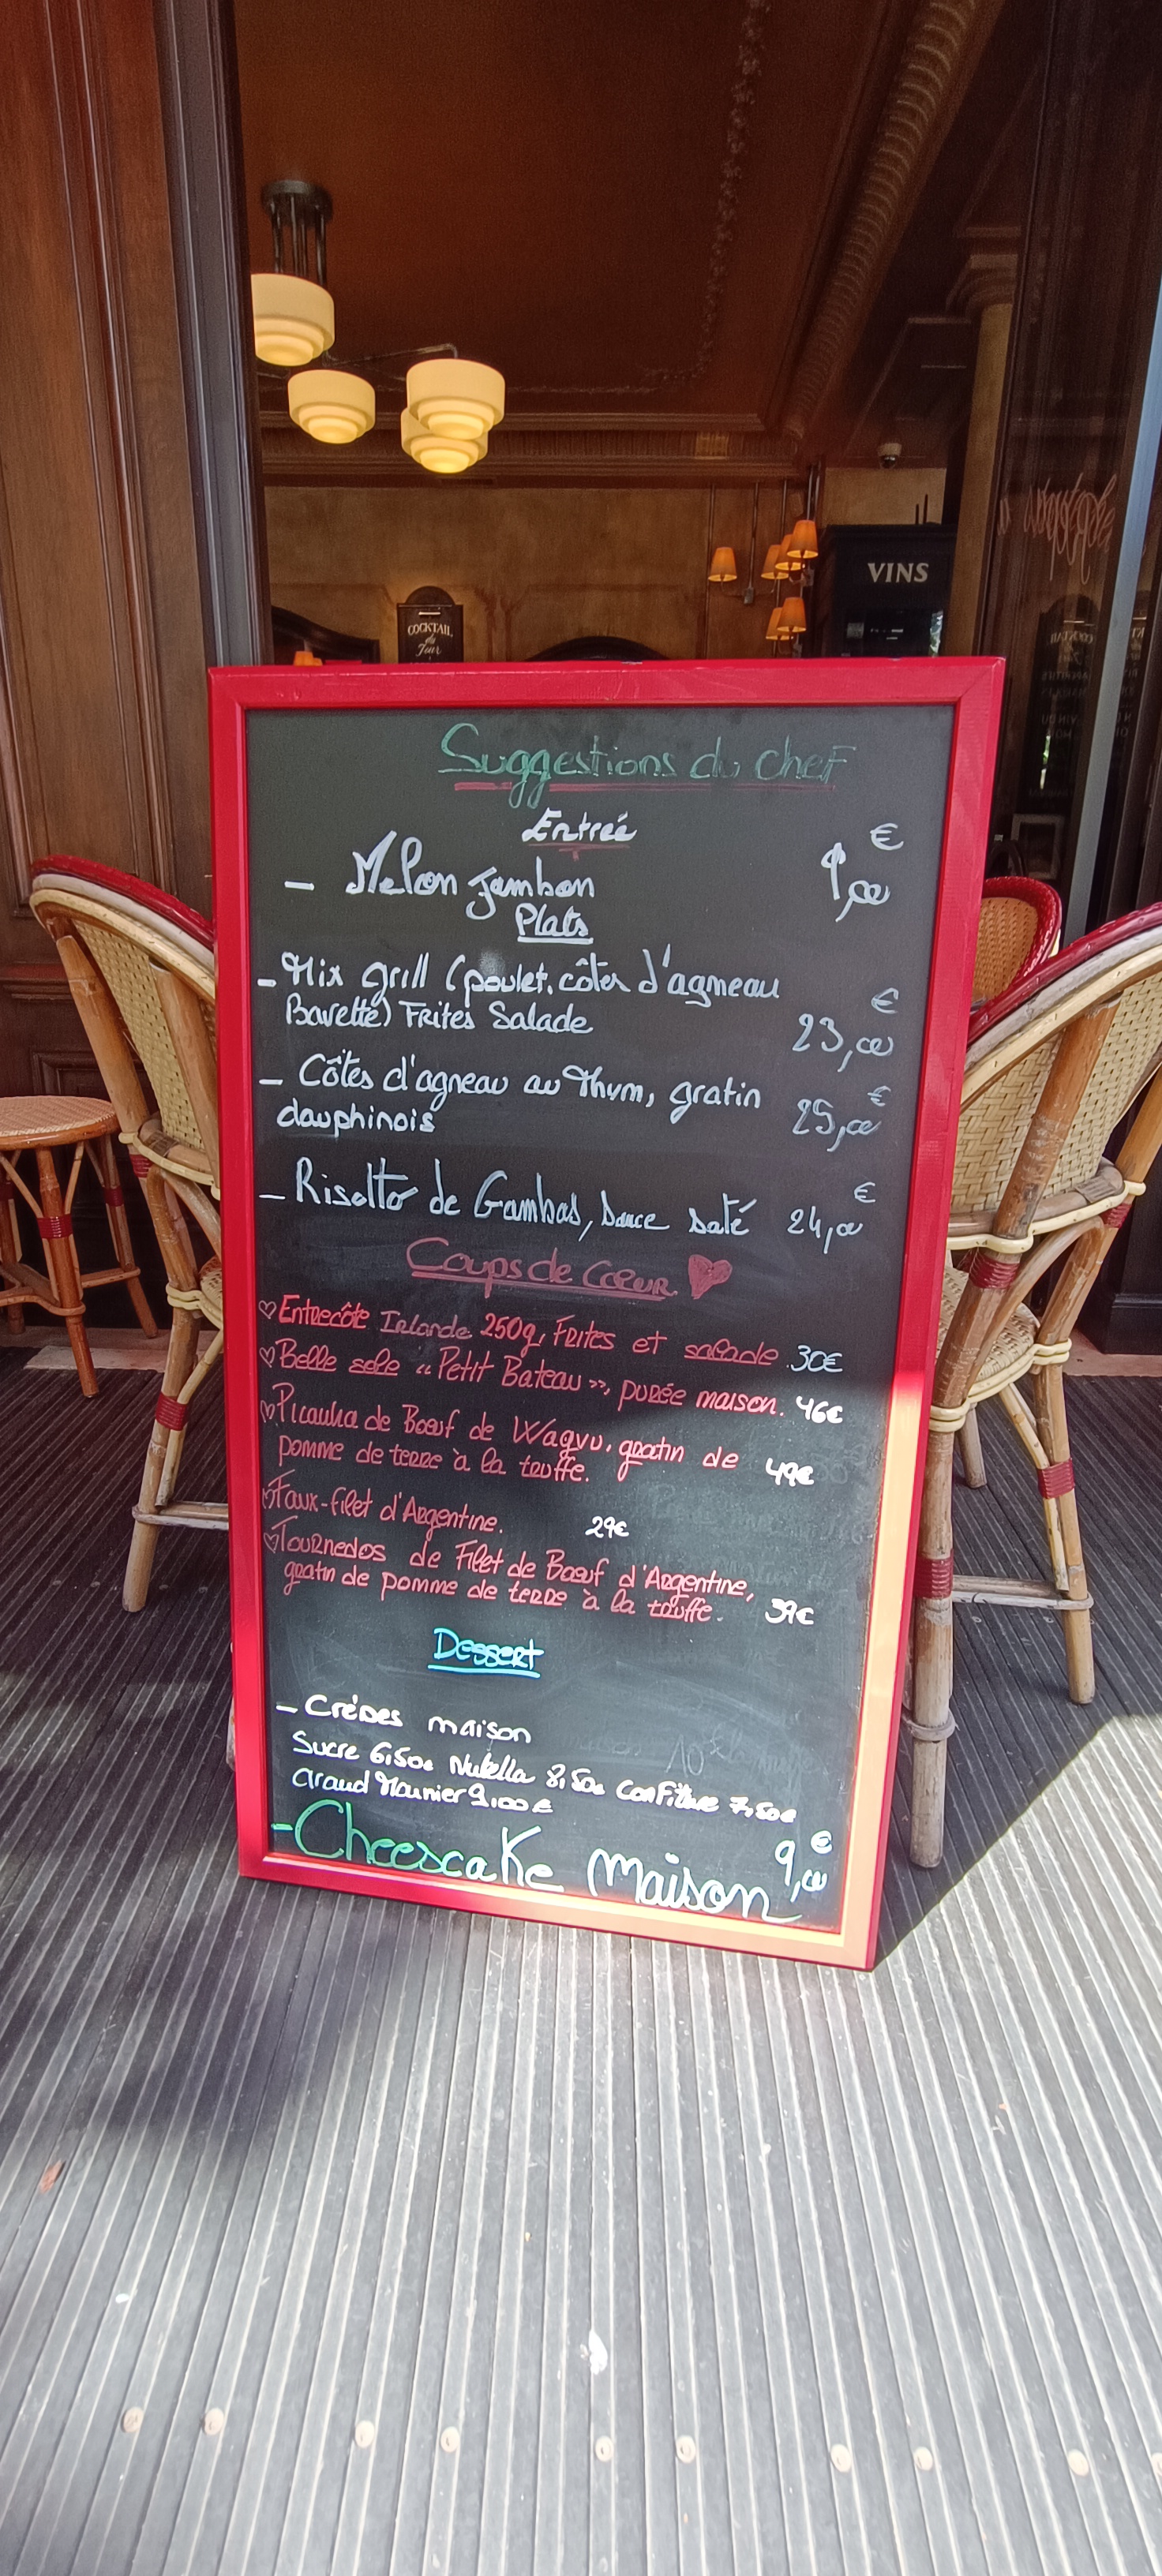 VINS
COCKTAIL
du
Jour
Suggestions du chef
Entrée
€
- Melon Jambon 9,00
Plats
- Mix grill (poulet, côtes d'agneau €
Bavette) Frites Salade 23,00
- Côtes d'agneau au Thym, gratin €
dauphinois 25,00
- Risotto de Gambas, sauce saté 24,00 €
Coups de Cœur
Entrecôte Irlande 250g, Frites et salade. 30€
Belle sole "Petit Bateau", purée maison. 46€
Picanha de Bœuf de Wagyu, gratin de
pomme de terre à la truffe. 49€
Faux-filet d'Argentine. 29€
Tournedos de Filet de Bœuf d'Argentine,
gratin de pomme de terre à la truffe. 39€
Dessert
- Crêpes maison
Sucre 6,50€ Nutella 8,50€ Confiture 7,50€
Grand Marnier 9,00€
- Cheescake Maison 9,00 €